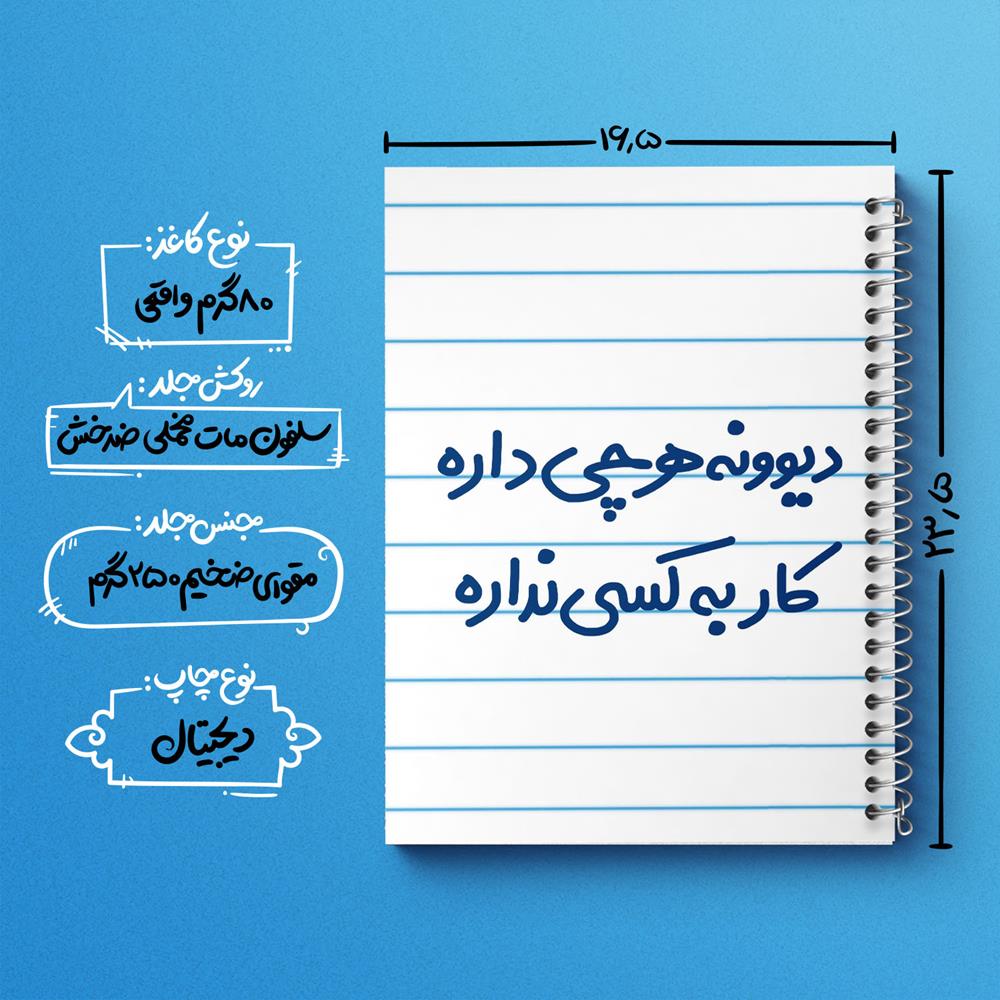 ۱۶٫۵
۲۳٫۵
دیوونه هرچی داره
کار به کسی نداره
نوع کاغذ:
۸۰گرم واقعی
روکش جلد:
سلفون مات مخملی ضدخش
جنس جلد:
مقوای ضخیم ۲۵۰گرم
نوع چاپ:
دیجیتال